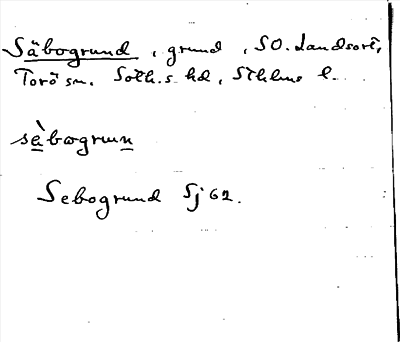 Säbogrund, grund, SO. Landsort,
Torö sn. Soth.s hd, Sthlms l.
sä̀bogrun
Sebogrund Sj 62.